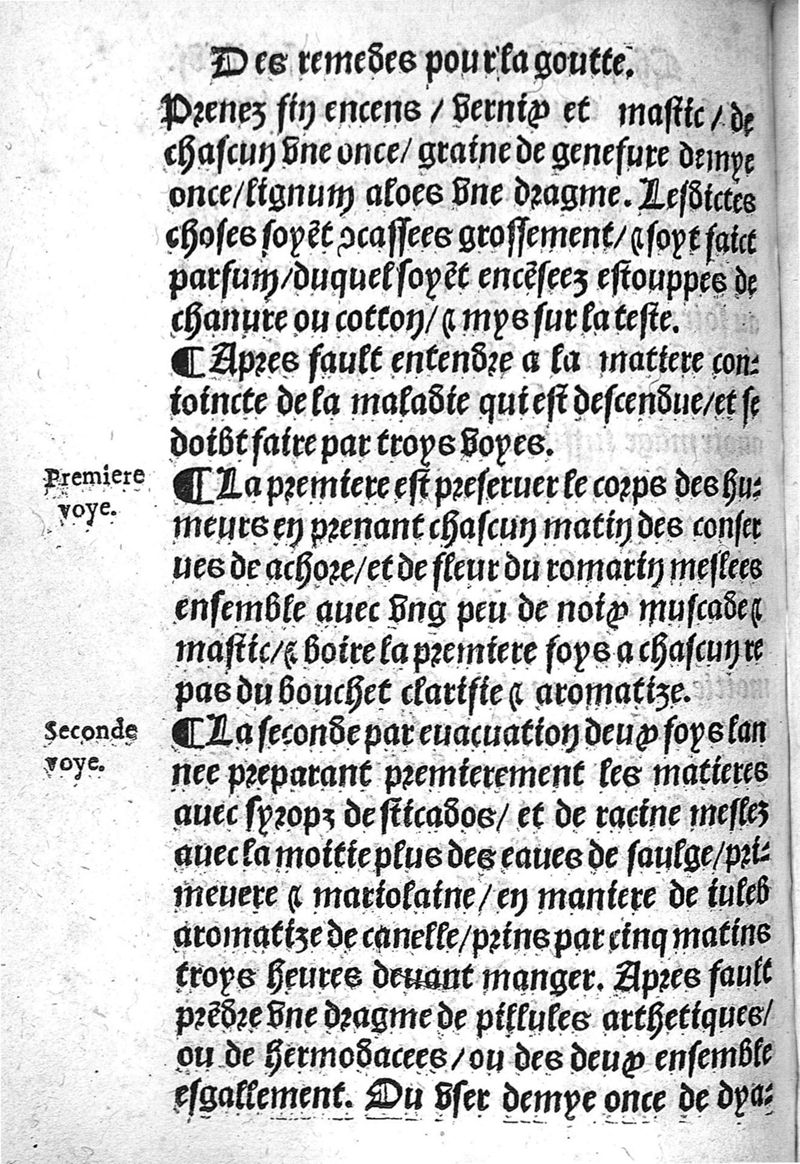 Des remedes pour la goutte.
Prenez fin encens / vernix et mastic / de
chascun vne once / graine de genefure demye
once / lignum aloes vne dragme. Lesdictes
choses soyēt ꝯcassees grossement / ⁊ soyt faict
parfum / duquel soyēt encēseez estouppes de
chanure ou cotton / ⁊ mys sur la teste.
¶ Apres fault entendre a la matiere con⸗
ioincte de la maladie qui est descendue / et se
doibt faire par troys voyes.
Premiere
voye.
¶ La premiere est preseruer le corps des hu⸗
meurs en prenant chascun matin des conser
ues de achore / et de fleur du romarin meslees
ensemble auec vng peu de noix muscade ⁊
mastic / ⁊ boire la premiere foys a chascun re
pas du bouchet clarifie ⁊ aromatize.
Seconde
voye.
¶ La seconde par euacuation deux foys lan
nee preparant premierement les matieres
auec syropz de sticados / et de racine meslez
auec la moitie plus des eaues de saulge / pri⸗
meuere ⁊ mariolaine / en maniere de iuleb
aromatize de canelle / prins par cinq matins
troys heures deuant manger. Apres fault
prēdre vne dragme de pillules arthetiques /
ou de hermodacees / ou des deux ensemble
esgallement. Ou vser demye once de dya⸗